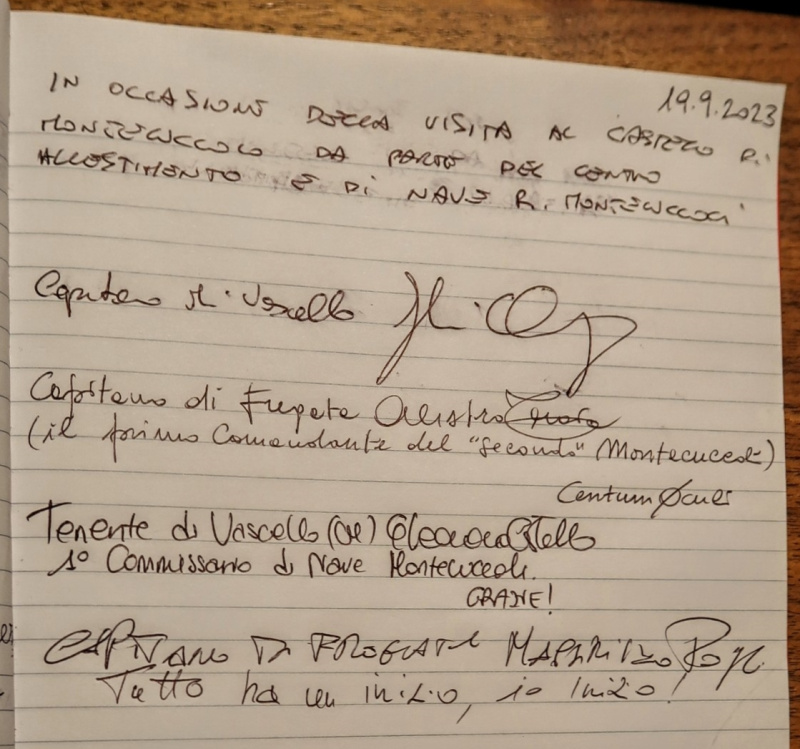 19.9.2023
IN OCCASIONE DELLA VISITA AL CASTELLO DI
MONTECUCCOLO DA PARTE DEL CENTRO
ALLESTIMENTO E DI NAVE R. MONTECUCCOLI
Capitano di Vascello
Capitano di Fregata
(il primo Comandante del "secondo" Montecuccoli)
Centum Oculi
Tenente di Vascello (CM) Eleonora
1° Commissario di Nave Montecuccoli.
GRAZIE!
CAPITANO DI FREGATA MAURIZIO
Tutto ha un inizio, io inizio!